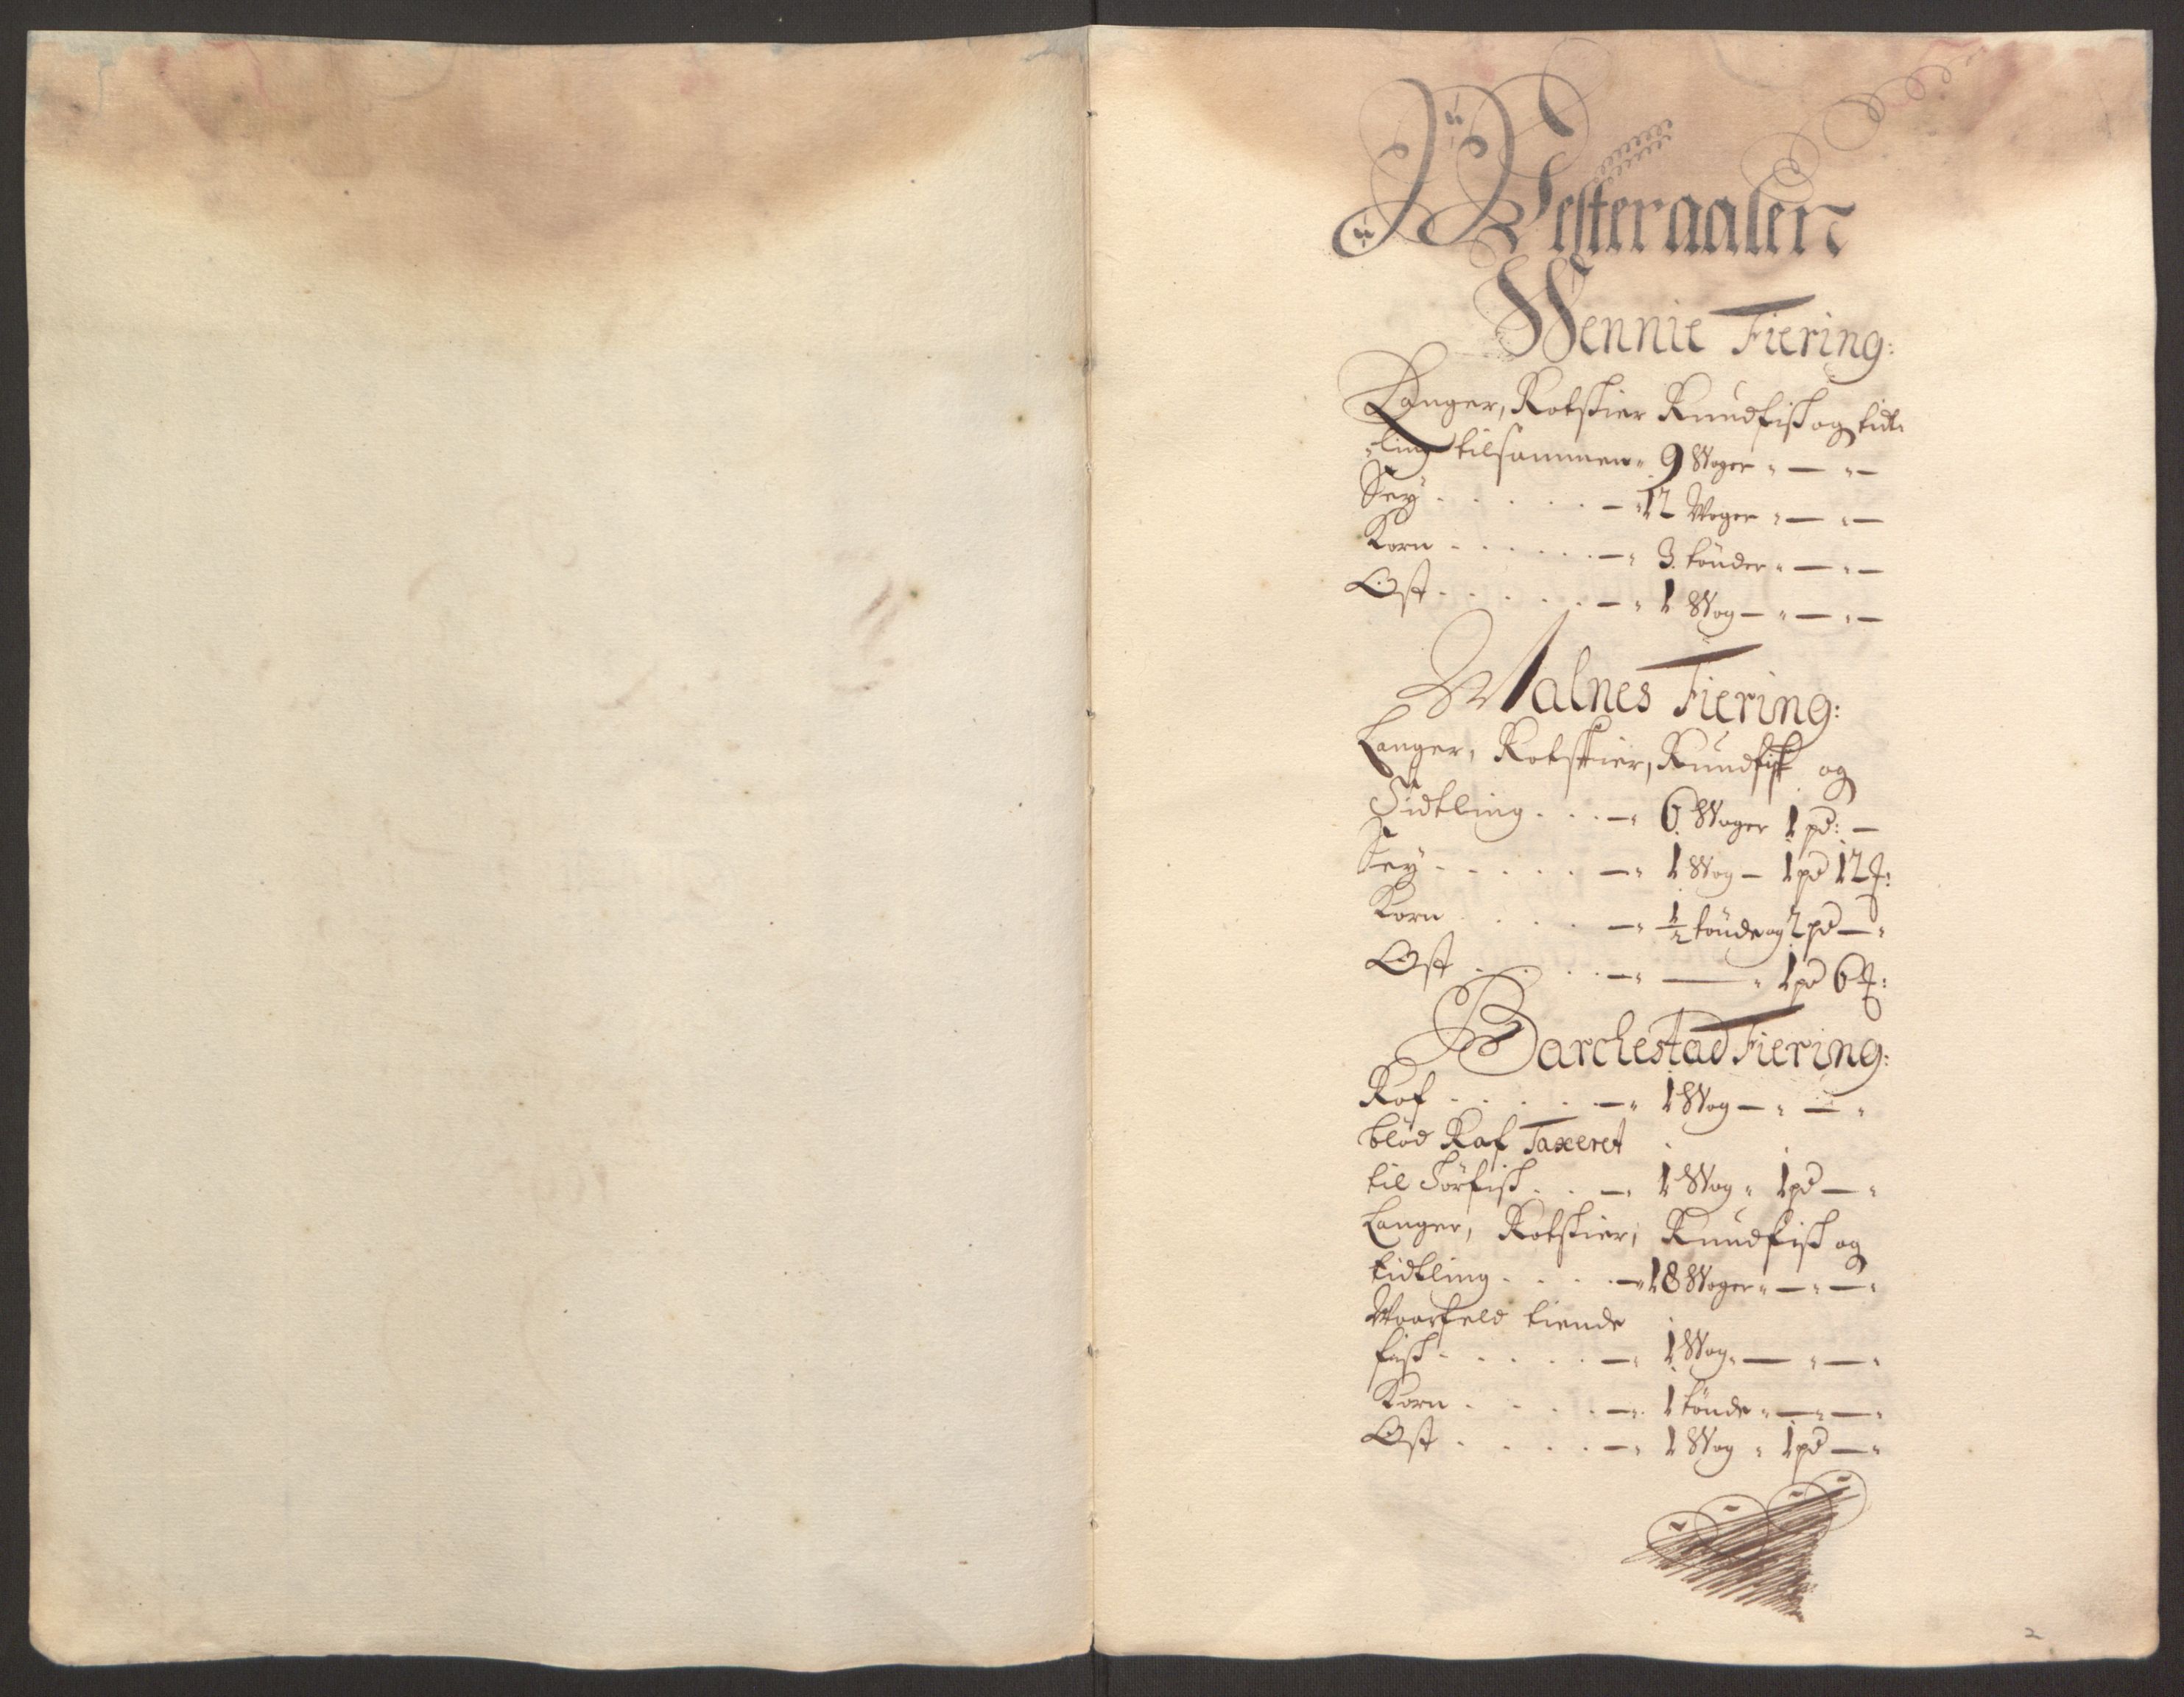 Westeraalen
Wennie Fiering:
Langer, Rotskier Rundfisk og tidt-
ling tilsammen 9 Woger " — " —
Sey . . . . — " 12 Woger " — " —
Korn . . . . . . — " 3. tönder " — " —
Ost . . . . . — " 1 Wog — " — " —
Malnes Fiering:
Langer, Rotskier, Rundfisk og
Tidtling . . . — " 6. Woger 1 pd: —
Sey . . . . . — " 1 Wog — 1 pd 12 ℔:
Korn . . . . — " ½ tönde og 2 pd — "
Ost . . . . — " — " 1 pd 6 ℔:
Barchestad Fiering:
Raf . . . . . — " 1 Wog — " — "
blöd Raf Taxeret
til Törfisk . . — " 1 Wog " 1 pd — "
Langer, Rotskier, Rundfisk og
tidtling . . . . — " 18 Woger " — " — "
Woorfeld tiende
fisk . . . . . — " 1 Wog " — " — "
Korn . . . . . — " 1 tönde " — " — "
Ost . . . . — " 1 Wog " 1 pd — "
2